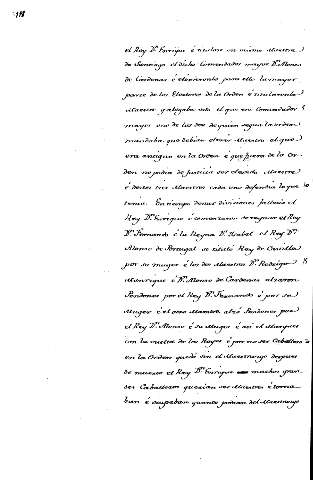 el Rey Dn Enrrique é tuvieron un mismo Maestre
de Santiago el dicho Comendador mayor Dn Alonso
de Cardenas é eligieronlo para ello la mayor
parte de los Electores de la Orden é
Maestre que el era Comendador 5
mayor uno de los dos de quien segun la orden
mandaba, que debian elexir Maestre al que
era antiguo en la Orden é que fuera de la Or-
den no podia de justicia ser elexido Maestre
é destos tres Maestres cada uno defendia lo que 10
tomo. En tiempo destas divisiones fallecio el
Rey Dn Enrrique é comenzaron de reynar el Rey
Dn Fernando é la Reyna Da Isabel el Rey Dn
Alonso de Portugal se titulò Rey de Castilla
por su muger é los dos Maestres Dn Rodrigo 15
Manrrique é Dn Alonso de Cardenas alzaron
Pendones por el Rey Dn Fernando é por su
Muger é el otro Maestre alzó Pendones por
el Rey Dn Alonso é su Muger é asi el Marques
con la vuelta de los Reyes é por no ser Caballero 20
en la Orden quedó sin el Maestrazgo despues
de muerto el Rey Dn Enrrique muchos gran-
des Caballeros querian ser Maestres é toma-
ban é ocupaban quanto podian del Maestrazgo